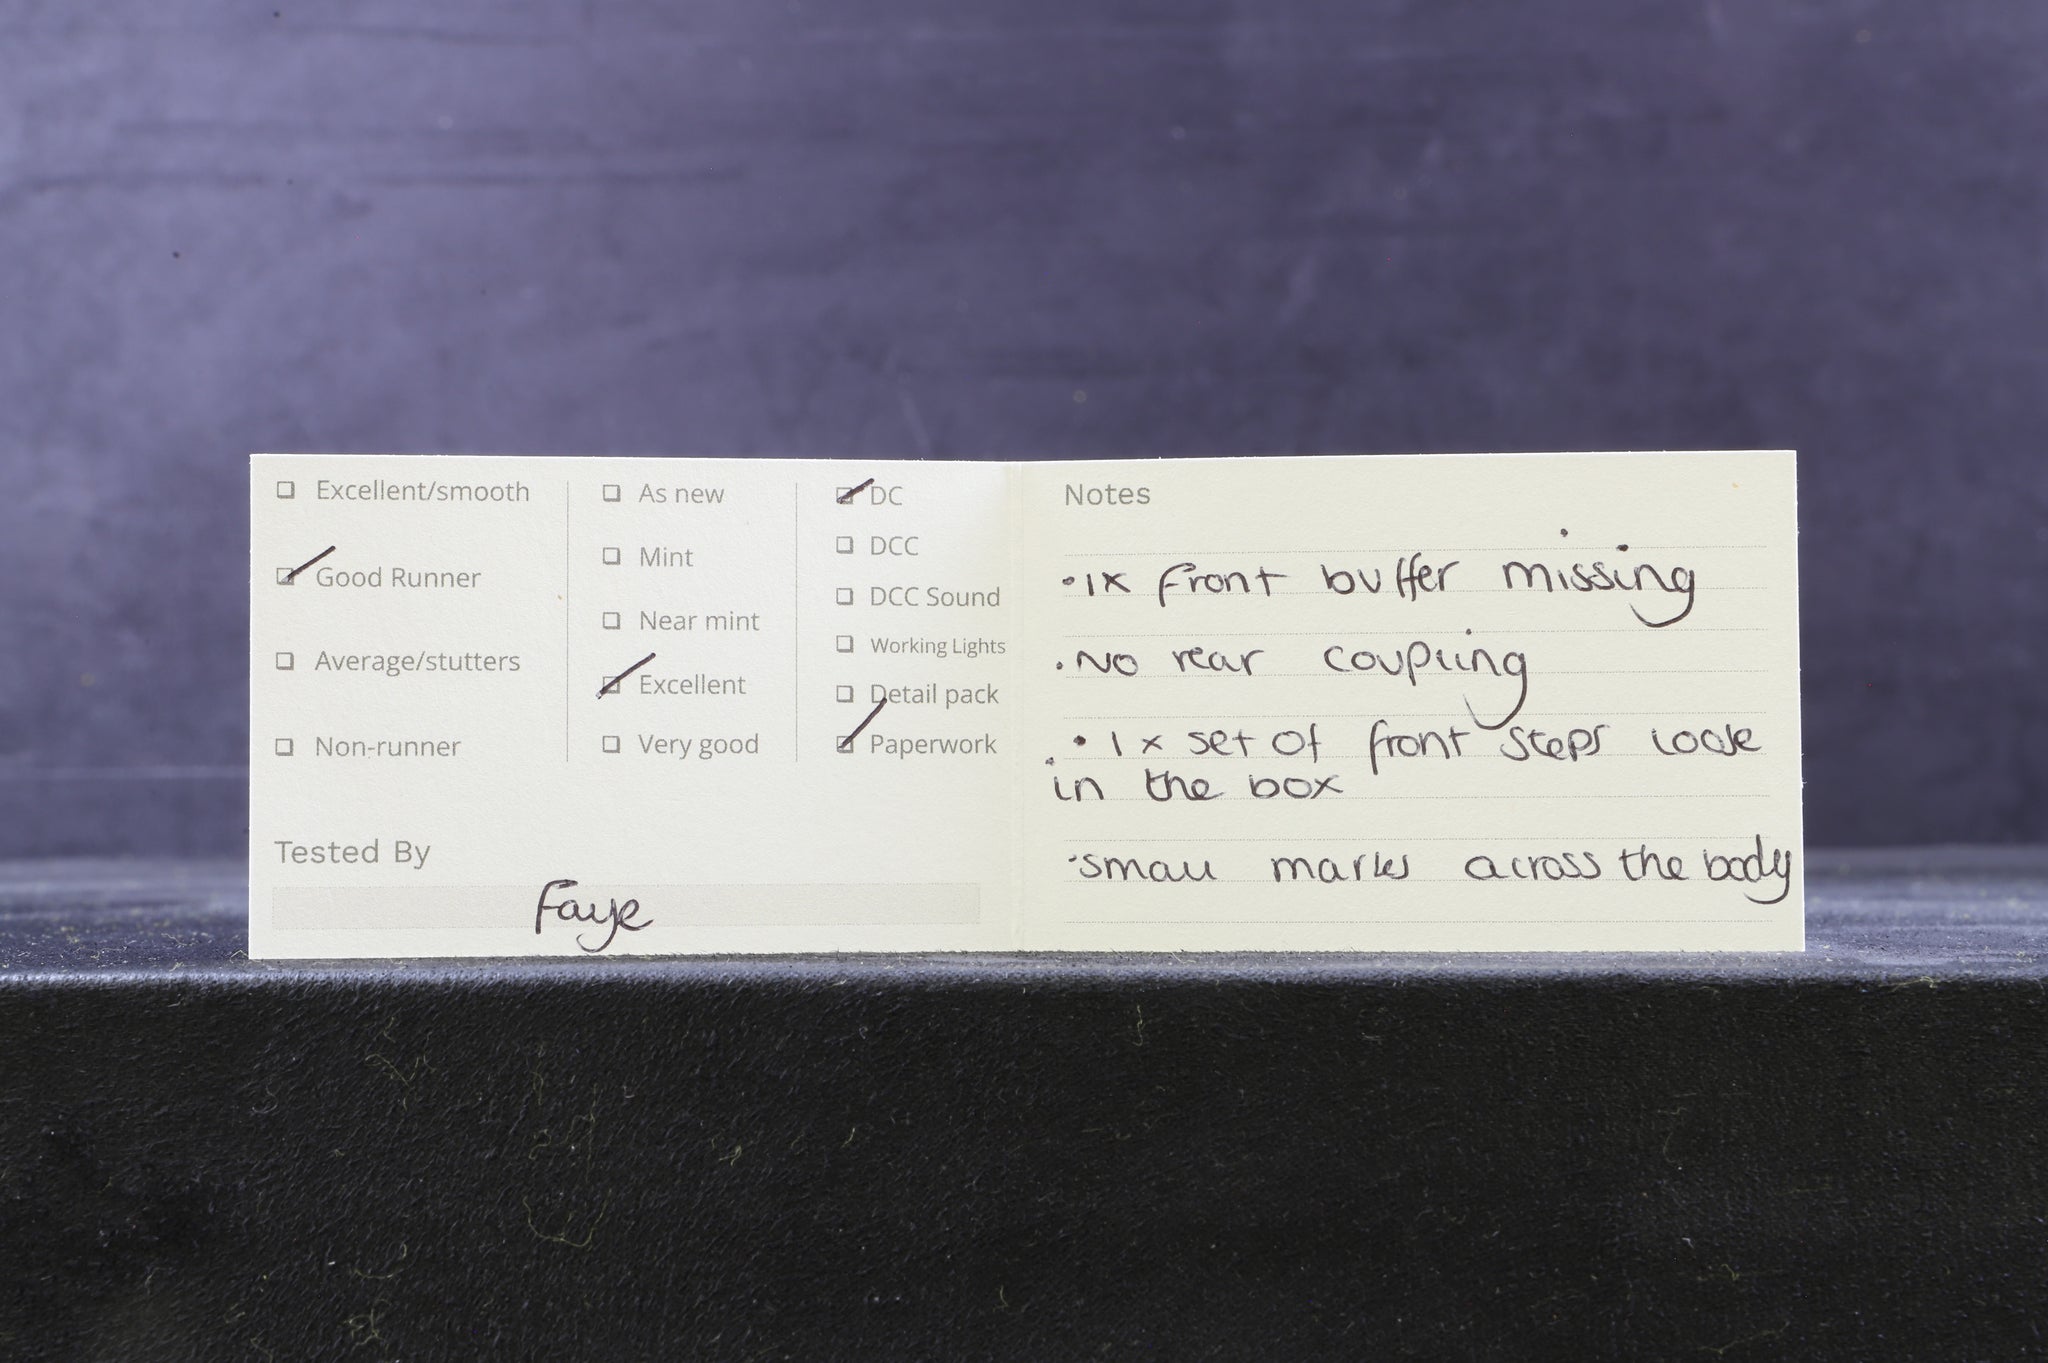 ☐ Excellent/smooth
☑ Good Runner
☐ Average/stutters
☐ Non-runner
☐ As new
☐ Mint
☐ Near mint
☑ Excellent
☐ Very good
☑ DC
☐ DCC
☐ DCC Sound
☐ Working Lights
☐ Detail pack
☑ Paperwork
Tested By
Faye
Notes
• 1x front buffer missing
• No rear coupling
• 1 x set of front steps loose
in the box
• small marks across the body